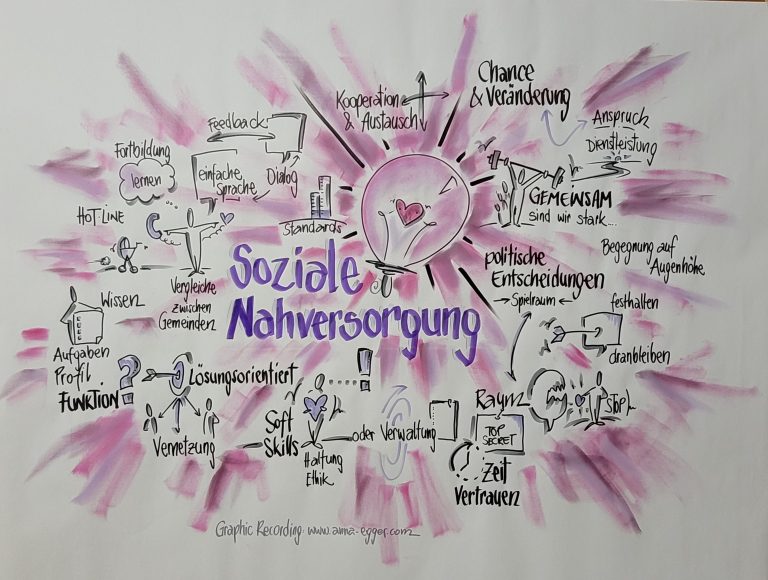 Soziale
Nahversorgung
Kooperation
& Austausch
Chance
& Veränderung
Anspruch
Dienstleistung
GEMEINSAM
sind wir stark...
Begegnung auf
Augenhöhe
politische
Entscheidungen
Spielraum
festhalten
dranbleiben
STOP!
Raum
TOP
SECRET
Zeit
Vertrauen
oder Verwaltung
Soft
Skills
Haltung
Ethik
!
Lösungsorientiert
Vernetzung
Wissen
Aufgaben
Profil
FUNKTION ?
Vergleiche
zwischen
Gemeinden
HOTLINE
Fortbildung
lernen
Feedback
einfache
Sprache
Dialog
Standards
Graphic Recording: www.anna-egger.com